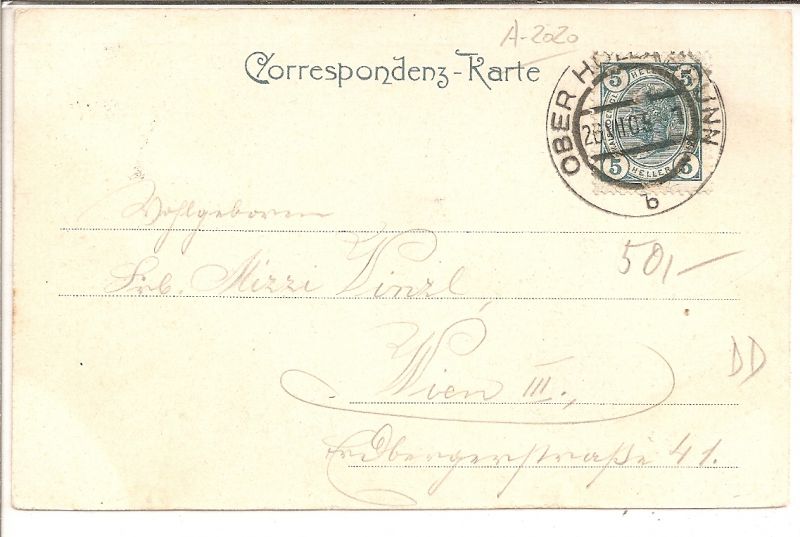 A-2020
Correspondenz-Karte
5 HELLER 5
5 HELLER 5
OBER
b
Wohlgeboren
Frl. Mizzi Vinzl,
50,—
Wien III.,
DD
Erdbergerstraße 41.